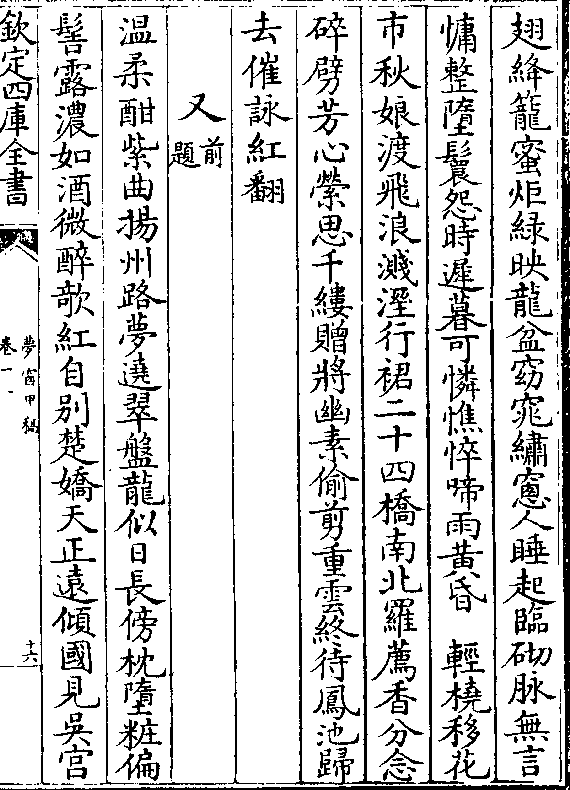 翅絳籠蜜炬緑映龍盆窈窕繡窻人睡起臨砌脉無言
慵整墮鬟怨時遲暮可憐憔悴啼雨黄昏　輕橈移花
市秋娘渡飛浪濺溼行裙二十四橋南北羅薦香分念
碎劈芳心縈思千縷贈將幽素偷剪重雲終待鳳池歸
去催詠紅翻
又前題
温柔酣紫曲揚州路夢遶翠盤龍似日長傍枕墮粧偏
髻露濃如酒微醉欹紅自别楚嬌天正遠傾國見吳宫
欽定四庫全書
夢窗甲稿
卷一
十六